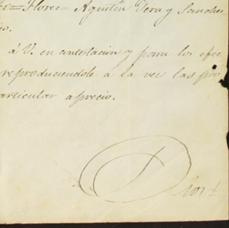 Flores= Agustin Vera y Sanches
á V. en contestacion y para los efec
reproduciendole á la vez las pro
articular aprecio.